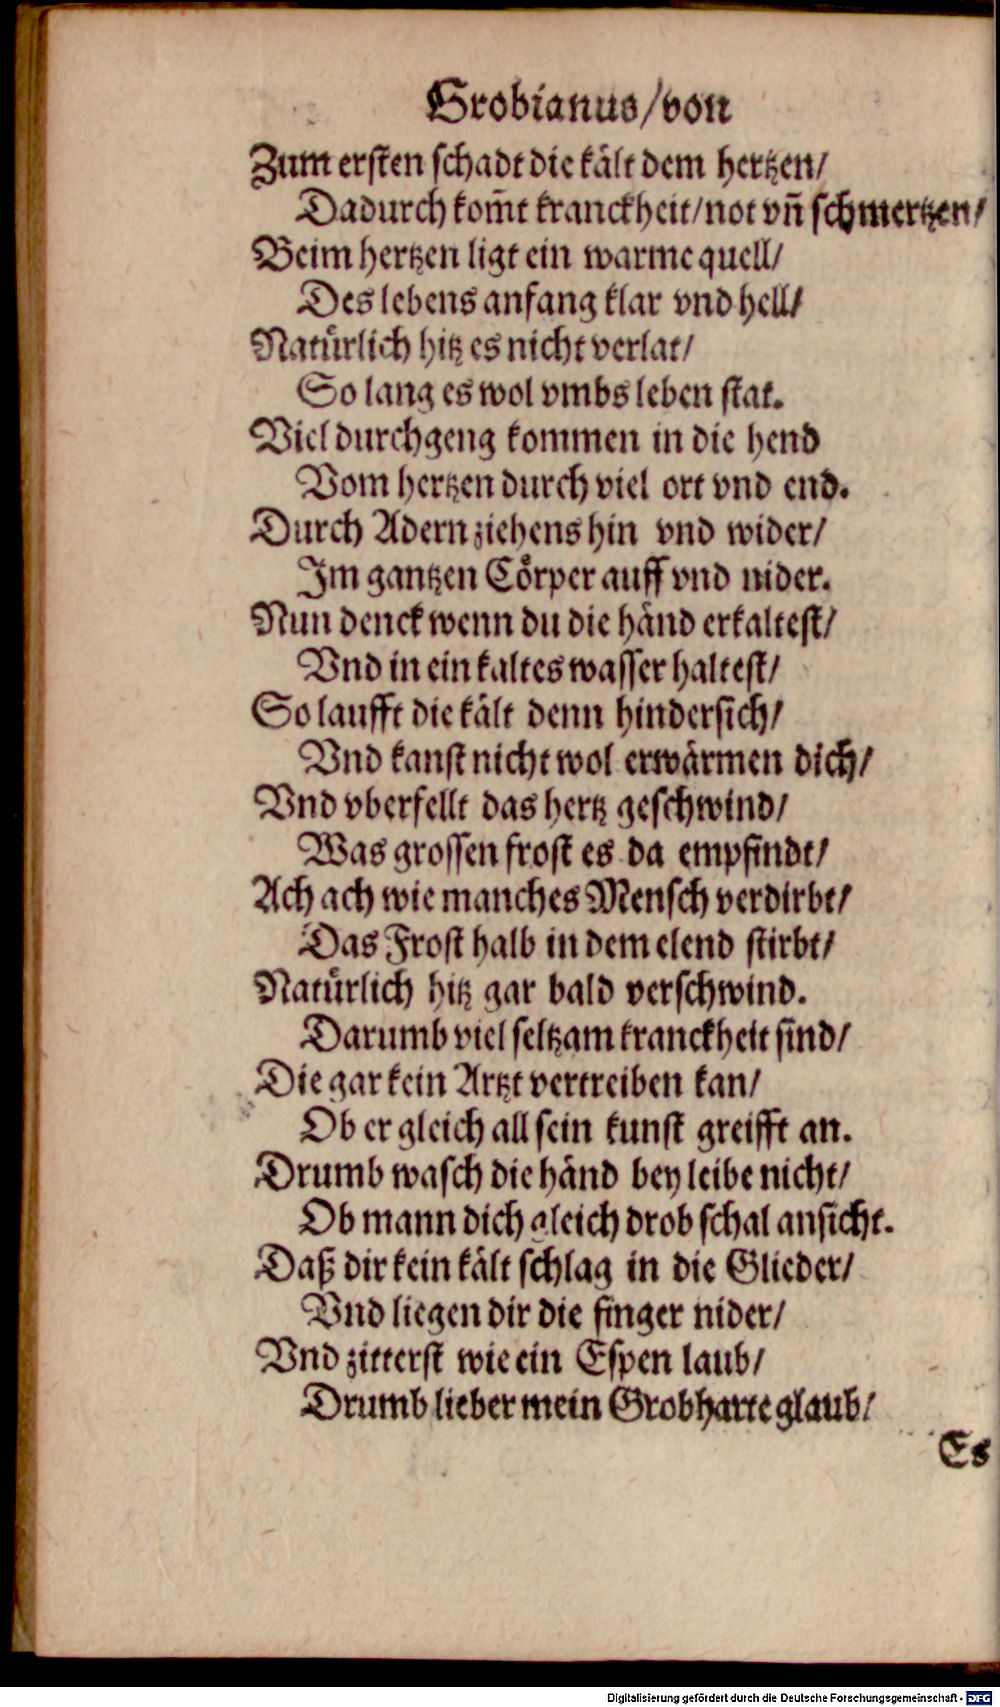 Grobianus/von
Zum ersten schadt die kält dem hertzen/
Dadurch kom̃t kranckheit/not vñ schmertzen/
Beim hertzen ligt ein warme quell/
Des lebens anfang klar vnd hell/
Natuͤrlich hitz es nicht verlat/
So lang es wol vmbs leben stat.
Viel durchgeng kommen in die hend
Vom hertzen durch viel ort vnd end.
Durch Adern ziehens hin vnd wider/
Im gantzen Coͤrper auff vnd nider.
Nun denck wenn du die händ erkaltest/
Vnd in ein kaltes wasser haltest/
So laufft die kält denn hindersich/
Vnd kanst nicht wol erwärmen dich/
Vnd vberfellt das hertz geschwind/
Was grossen frost es da empfindt/
Ach ach wie manches Mensch verdirbt/
Das Frost halb in dem elend stirbt/
Natuͤrlich hitz gar bald verschwind.
Darumb viel seltzam kranckheit sind/
Die gar kein Artzt vertreiben kan/
Ob er gleich all sein kunst greifft an.
Drumb wasch die händ bey leibe nicht/
Ob mann dich gleich drob schal ansicht.
Daß dir kein kält schlag in die Glieder/
Vnd liegen dir die finger nider/
Vnd zitterst wie ein Espen laub/
Drumb lieber mein Grobharte glaub/
Es
Digitalisierung gefördert durch die Deutsche Forschungsgemeinschaft - DFG